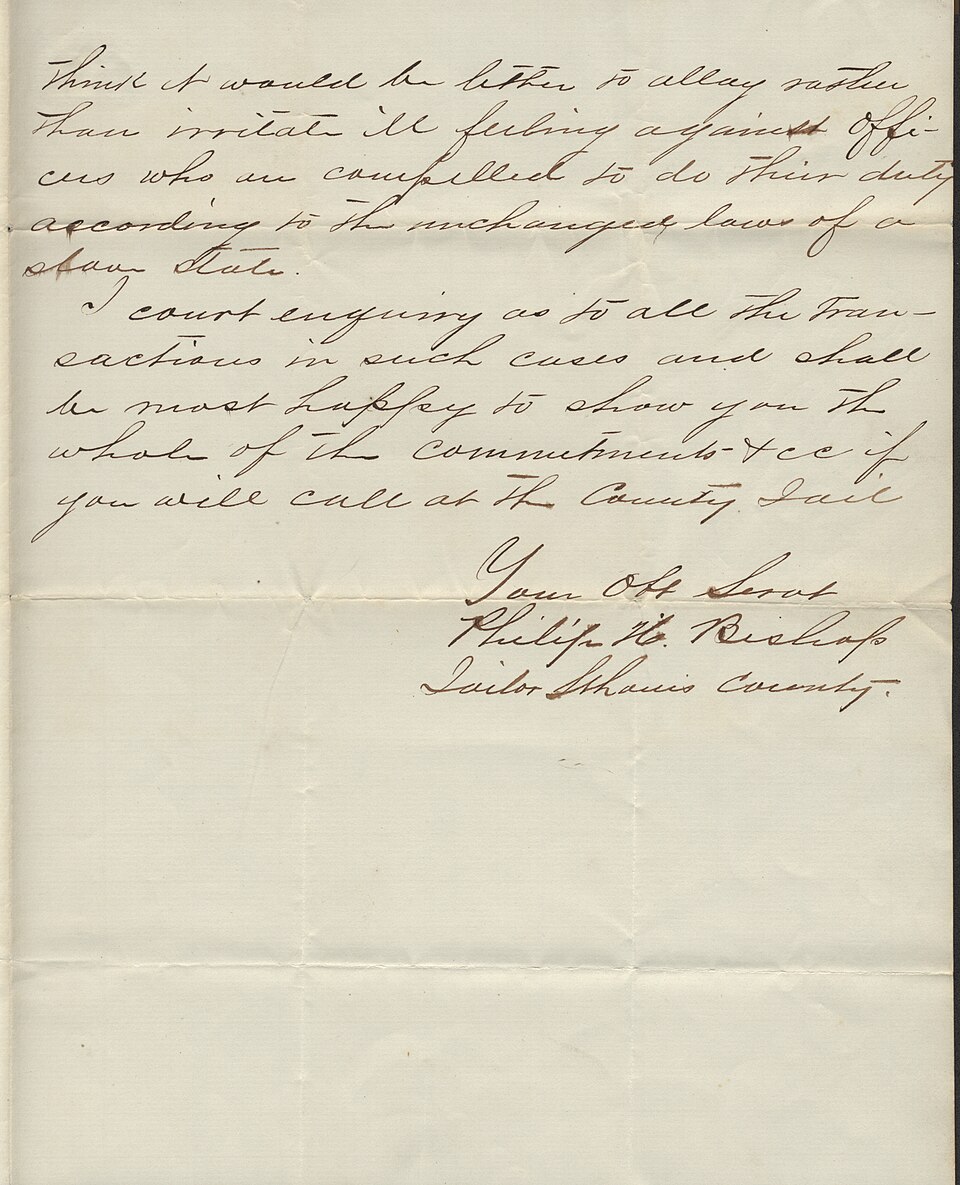 think it would be better to allay rather
than irritate ill feeling against offi-
cers who are compelled to do their duty
according to the unchanged laws of a
slave State.
I court enquiry as to all the tran-
sactions in such cases and shall
be most happy to show you the
whole of the commitments &cc if
you will call at the County Jail
Your Obt Servt
Philip H. Bishop
Jailor St Louis County.